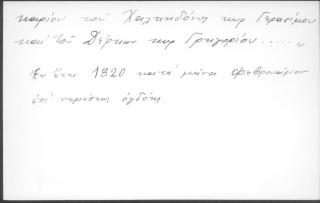 καιρίον τοῦ Χαλκηδόνος κυρ Γερασίμου
καὶ τοῦ Δέρκων κυρ Γρηγορίου.....„
Ἐν ἔτει 1820 κατὰ μῆνα Φεβρουάριον
ἐπὶ νεμέσεως ὀγδόης.